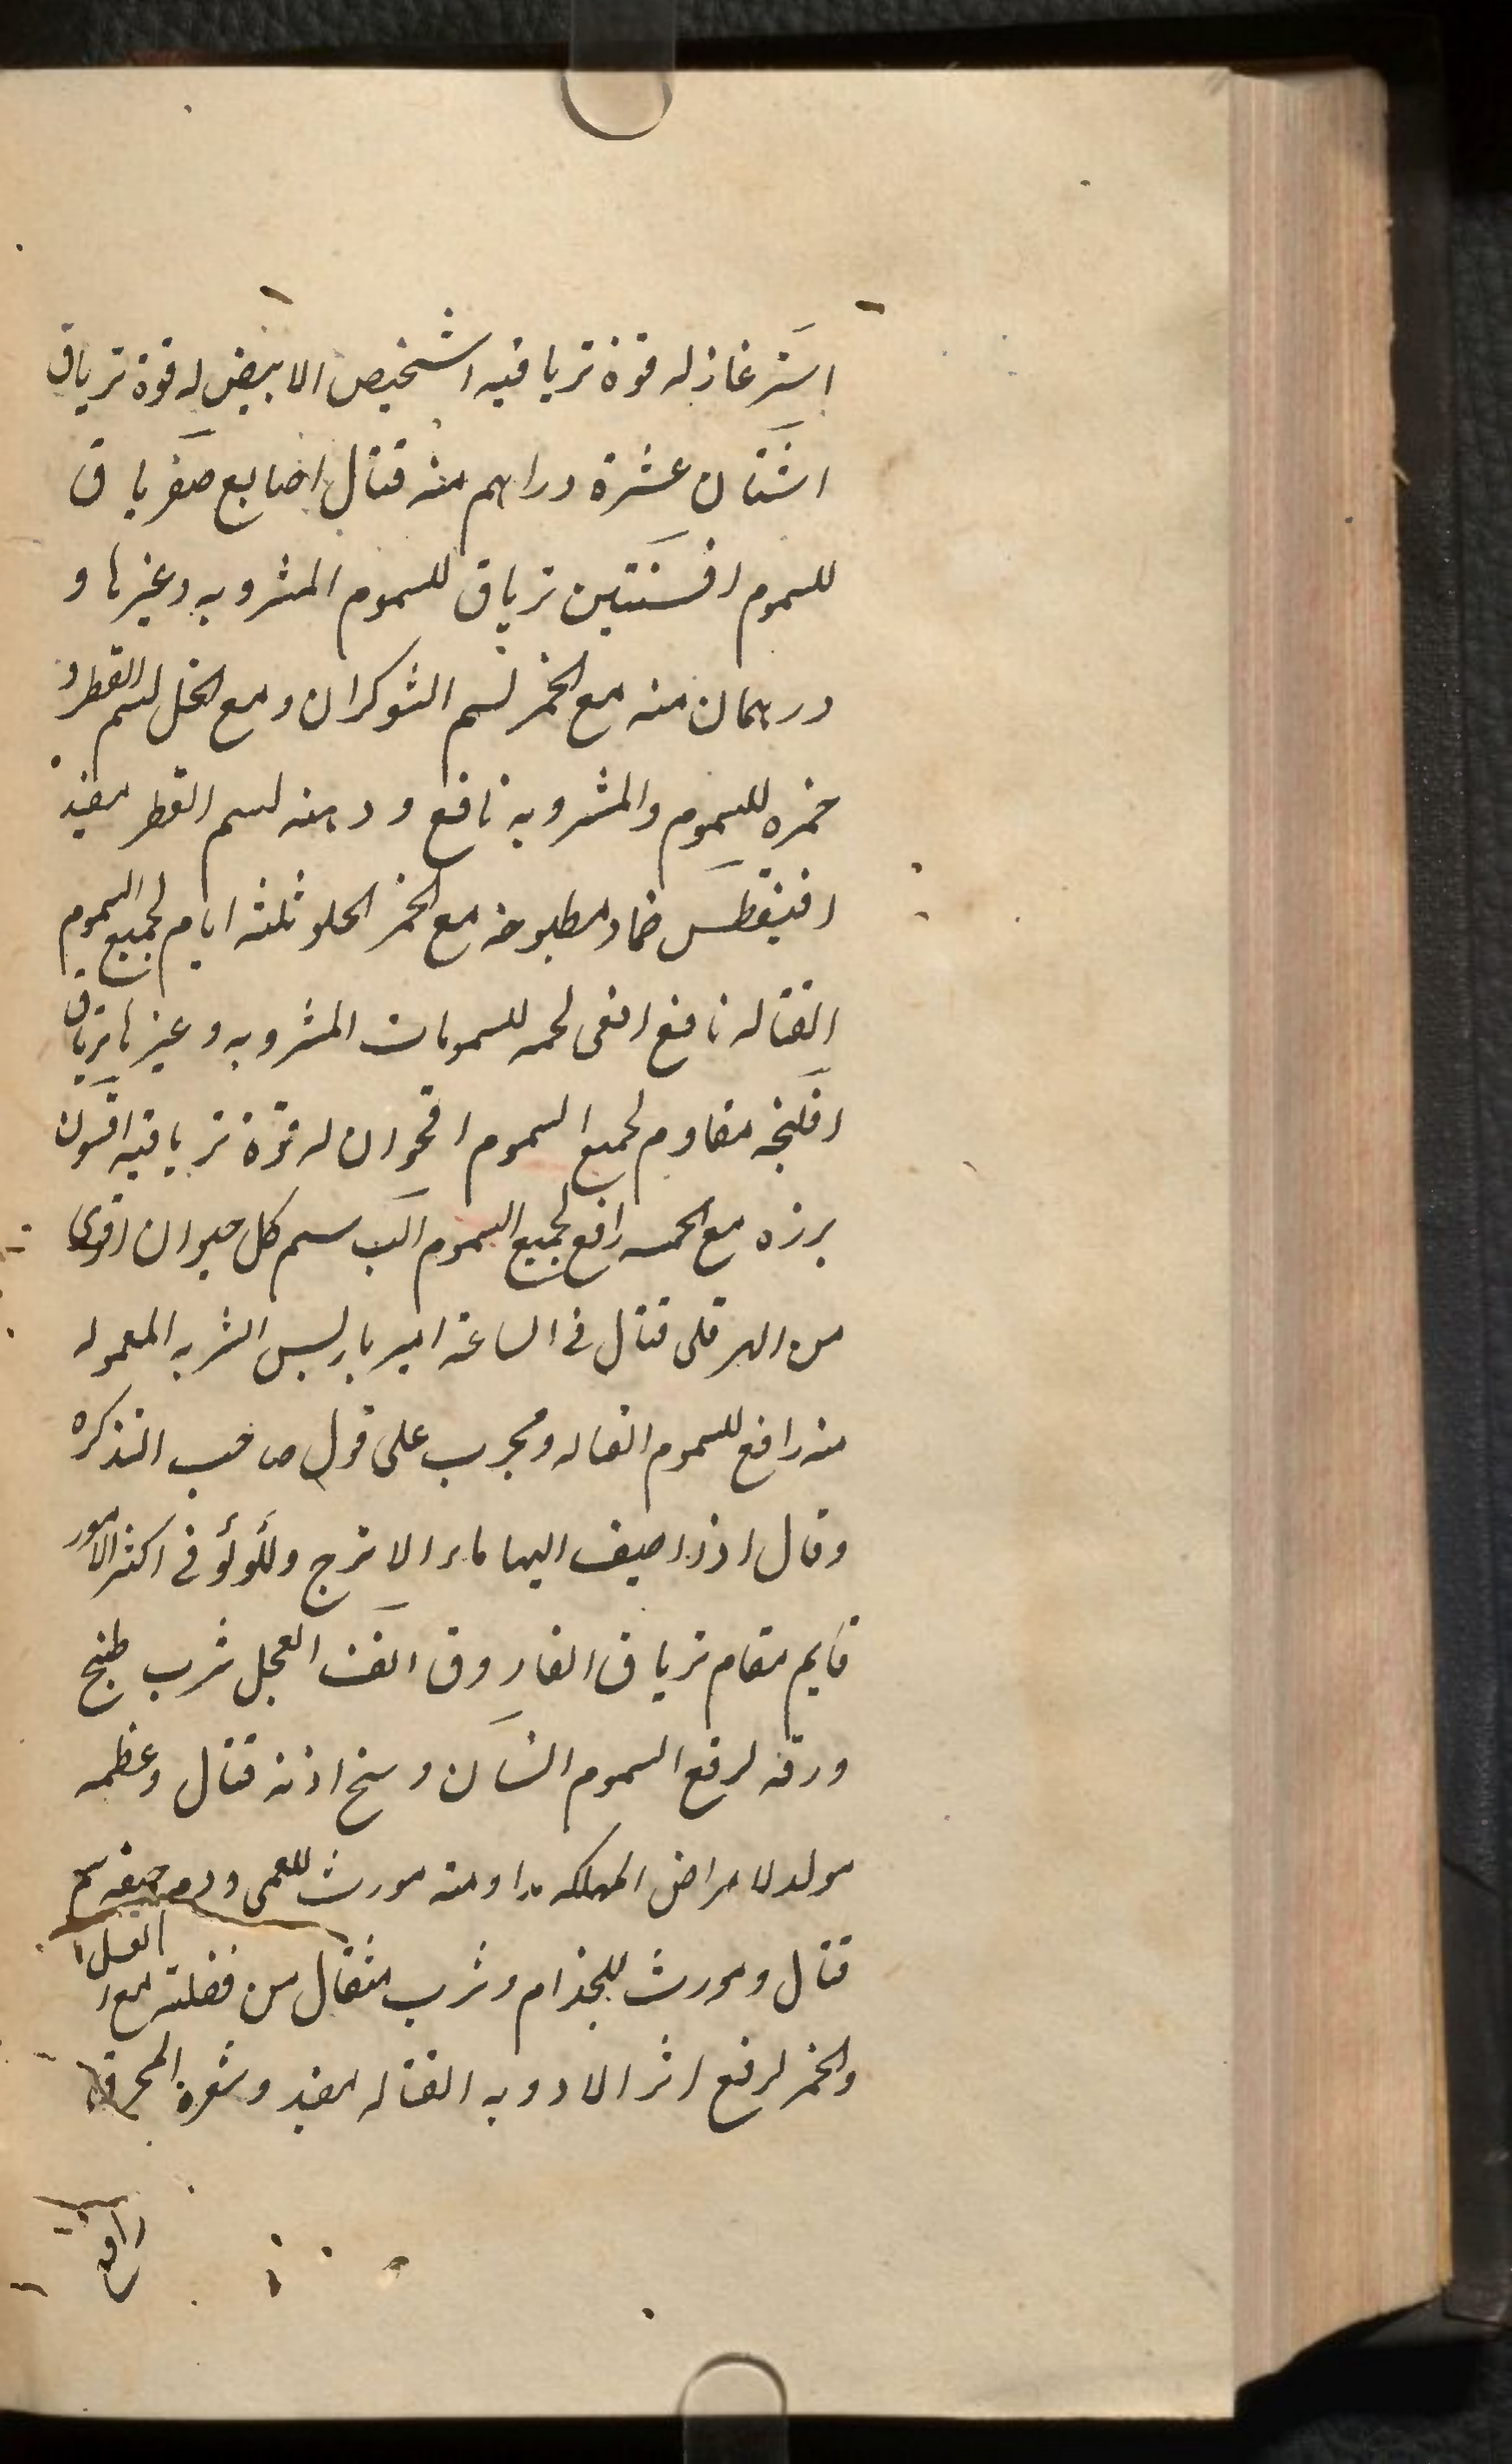 اشترغاز له قوة ترياقيه اشخيص الابيض له قوة ترياق
اشنان عشرة دراهم منه قتال اصابع صفر ترياق
للسموم افسنتين ترياق للسموم المشروبه وغيرها و
درهمان منه مع الخمر لسم الشوكران ومع الخل لسم القطر و
خمره للسموم والمشروبه نافع ودهنه لسم القطر مفيد
افنيقطس ضماد مطبوخه مع الخمر الحلو ثلثه ايام لجميع السموم
القتاله نافع افعى لحمه للسمومات المشروبه وغيرها ترياق
افلنجه مقاوم لجميع السموم اقحوان له قوة ترياقيه اقسون
برزه مع الخمر رافع لجميع السموم اكب سم كل حيوان اقوى
من الهر قلى قتال فى الساعة امير باريس الشربه المعموله
منه رافع للسموم القاله ومجرب على قول صاحب التذكره
وقال اذا اضيف اليها ماء الاترج وللؤلؤ فى اكثر الامور
قايم مقام ترياق الفاروق انف العجل شرب طبخ
ورقه لرفع السموم انسان وسخ اذنه قتال وعظمه
مولد لامراض المهلكه مداومته مورث للعمى ودم حيضه سم
قتال ومورث للجذام وشرب مثقال من فضلته مع العسل
والخمر لرفع اثر الادويه القتاله مفيد وشعرة المحرقه
رافع